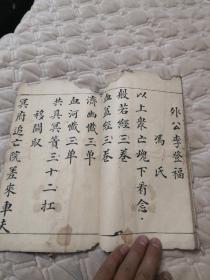 外公李登福
馮氏
以上衆亡魂下看念
般若經三卷
血盆經三卷
濟幽懺三单
血河懺三单
共具冥賫三十二扛
移関取
冥府追亡院墨來車夫